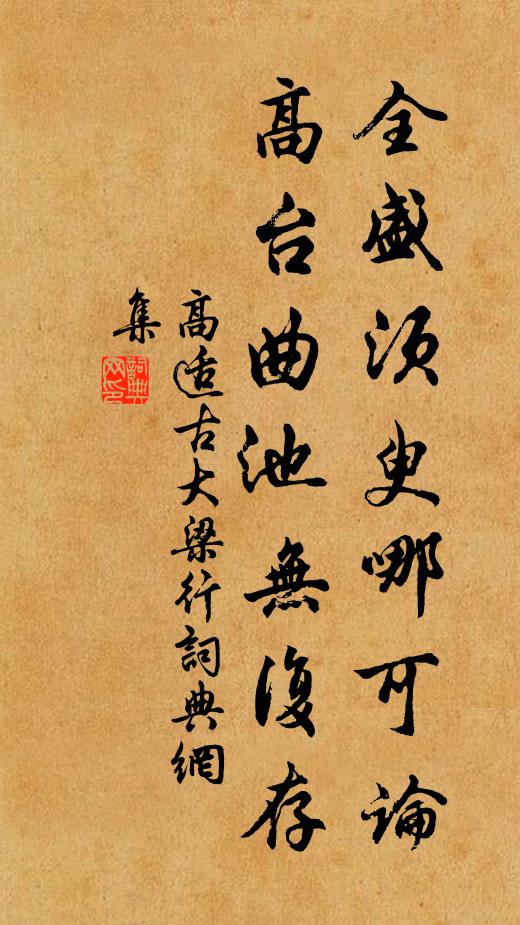 全盛須臾哪可論
高台曲池無復存
高适古大梁行詞典網
集
詞典
网印